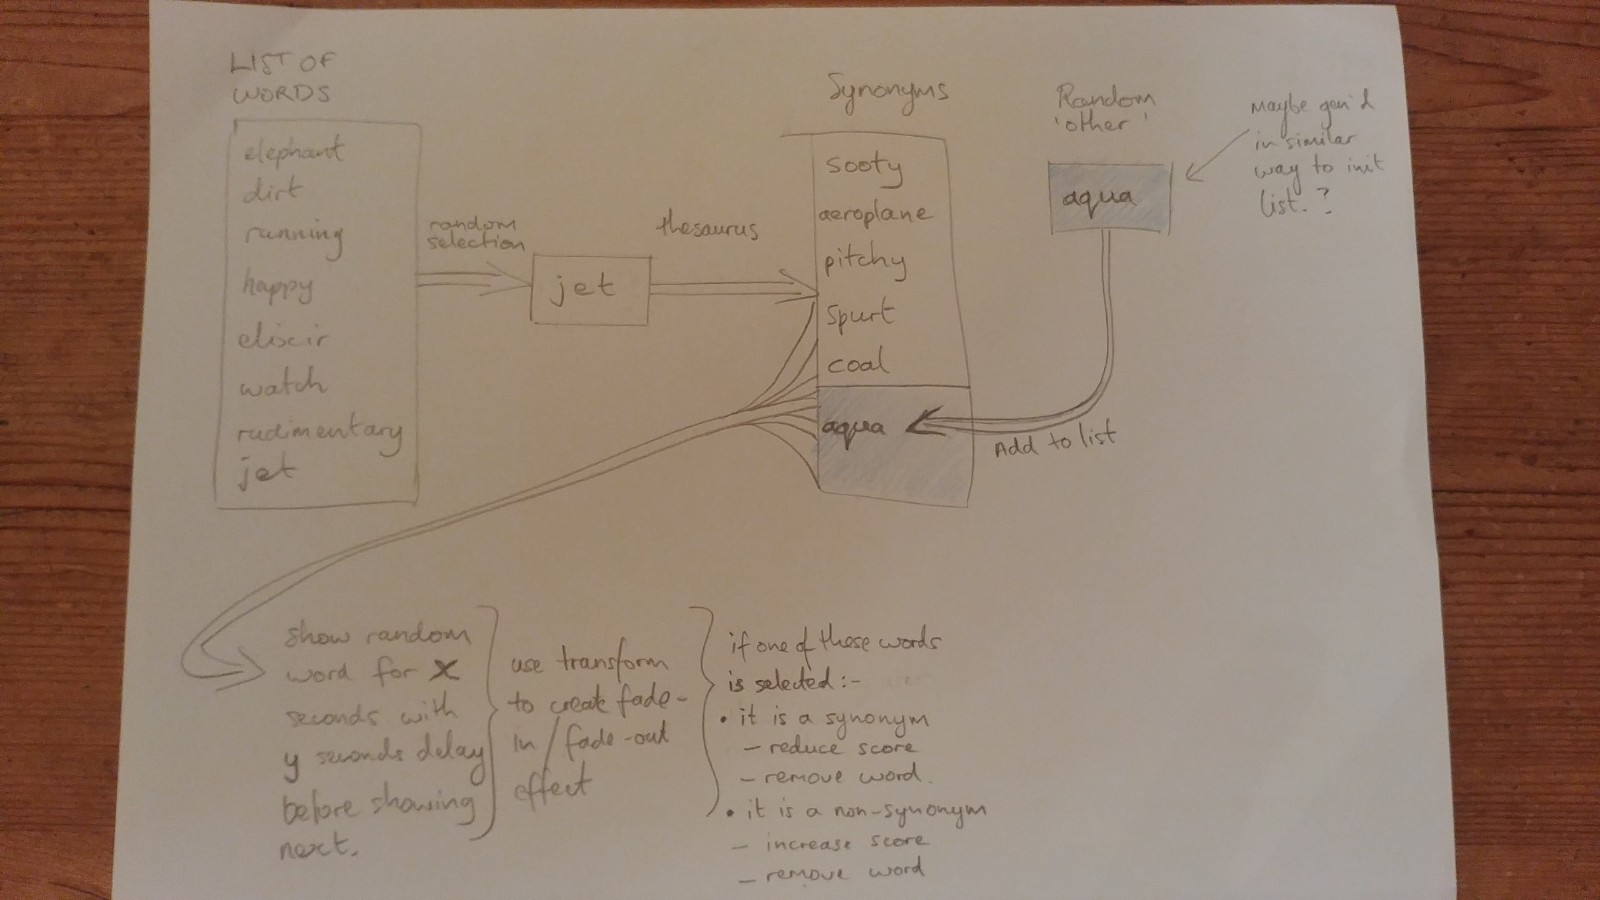 LIST OF
WORDS
elephant
dirt
running
happy
elixir
watch
rudimentary
jet
random
selection
jet
thesaurus
Synonyms
sooty
aeroplane
pitchy
spurt
coal
aqua
Random
'other'
aqua
Maybe gen'd
in similar
way to init
list.?
Add to list
show random
word for X
seconds with
y seconds delay
before showing
next.
use transform
to create fade-
in/fade-out
effect
if one of these words
is selected:-
• it is a synonym
- reduce score
- remove word.
• it is a non-synonym
- increase score
- remove word